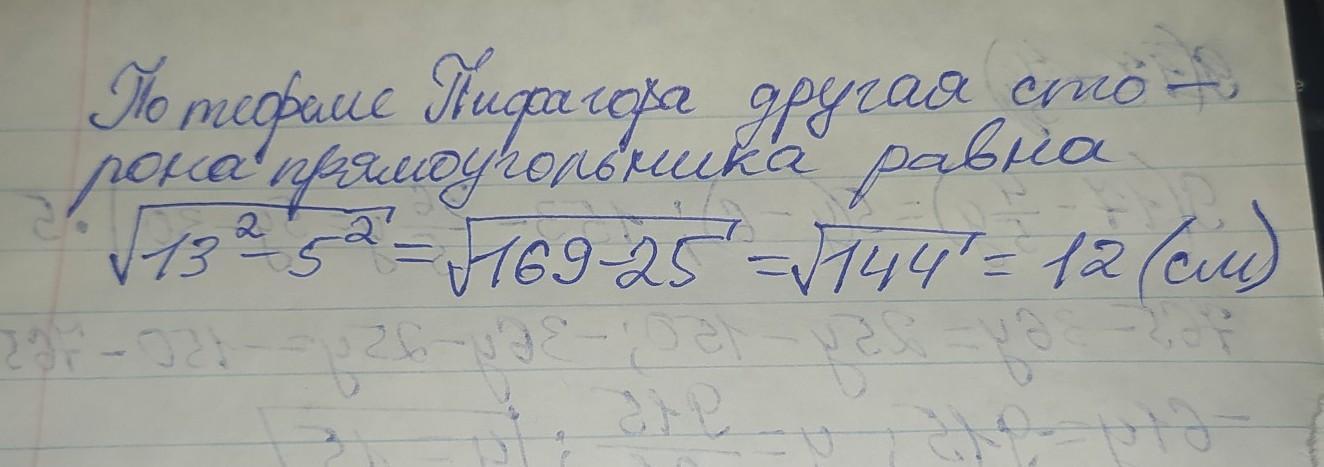 По теореме Пифагора другая сто-
рона прямоугольника равна
√13² - 5² = √169 - 25 = √144 = 12 (см)